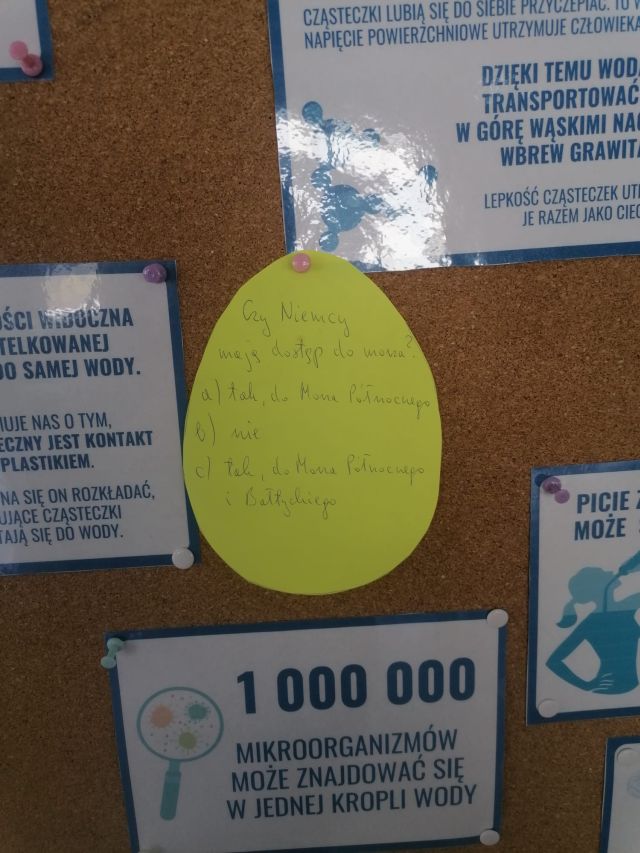 CZĄSTECZKI LUBIĄ SIĘ DO SIEBIE PRZYCZEPIAĆ. TO
NAPIĘCIE POWIERZCHNIOWE UTRZYMUJE CZŁOWIEKA
DZIĘKI TEMU WODA
TRANSPORTOWAĆ
W GÓRĘ WĄSKIMI
WBREW GRAWITA
LEPKOŚĆ CZĄSTECZEK UT
JE RAZEM JAKO CIEC
OŚCI WIDOCZNA
TELKOWANEJ
DO SAMEJ WODY.
MUJE NAS O TYM,
ECZNY JEST KONTAKT
PLASTIKIEM.
NA SIĘ ON ROZKŁADAĆ,
UJĄCE CZĄSTECZKI
TAJĄ SIĘ DO WODY.
Czy Niemcy
mają dostęp do morza?
a) tak, do Morza Północnego
b) nie
c) tak, do Morza Północnego
i Bałtyckiego
PICIE
MOŻE
1 000 000
MIKROORGANIZMÓW
MOŻE ZNAJDOWAĆ SIĘ
W JEDNEJ KROPLI WODY